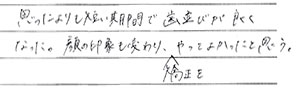 思ったよりも短い期間で歯並びが良く
なった。顔の印象も変わり、やってよかったと思う。
矯正を